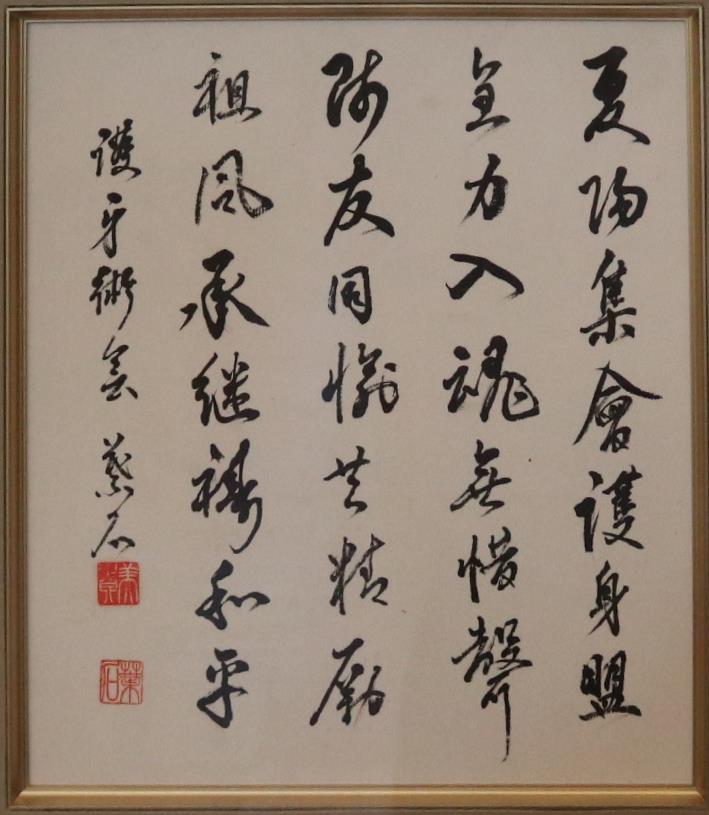 夏陽集會護身盟
全力入魂無惜聲
師友同共精励
祖風承継祷和平
護身術会 葉石
葉石